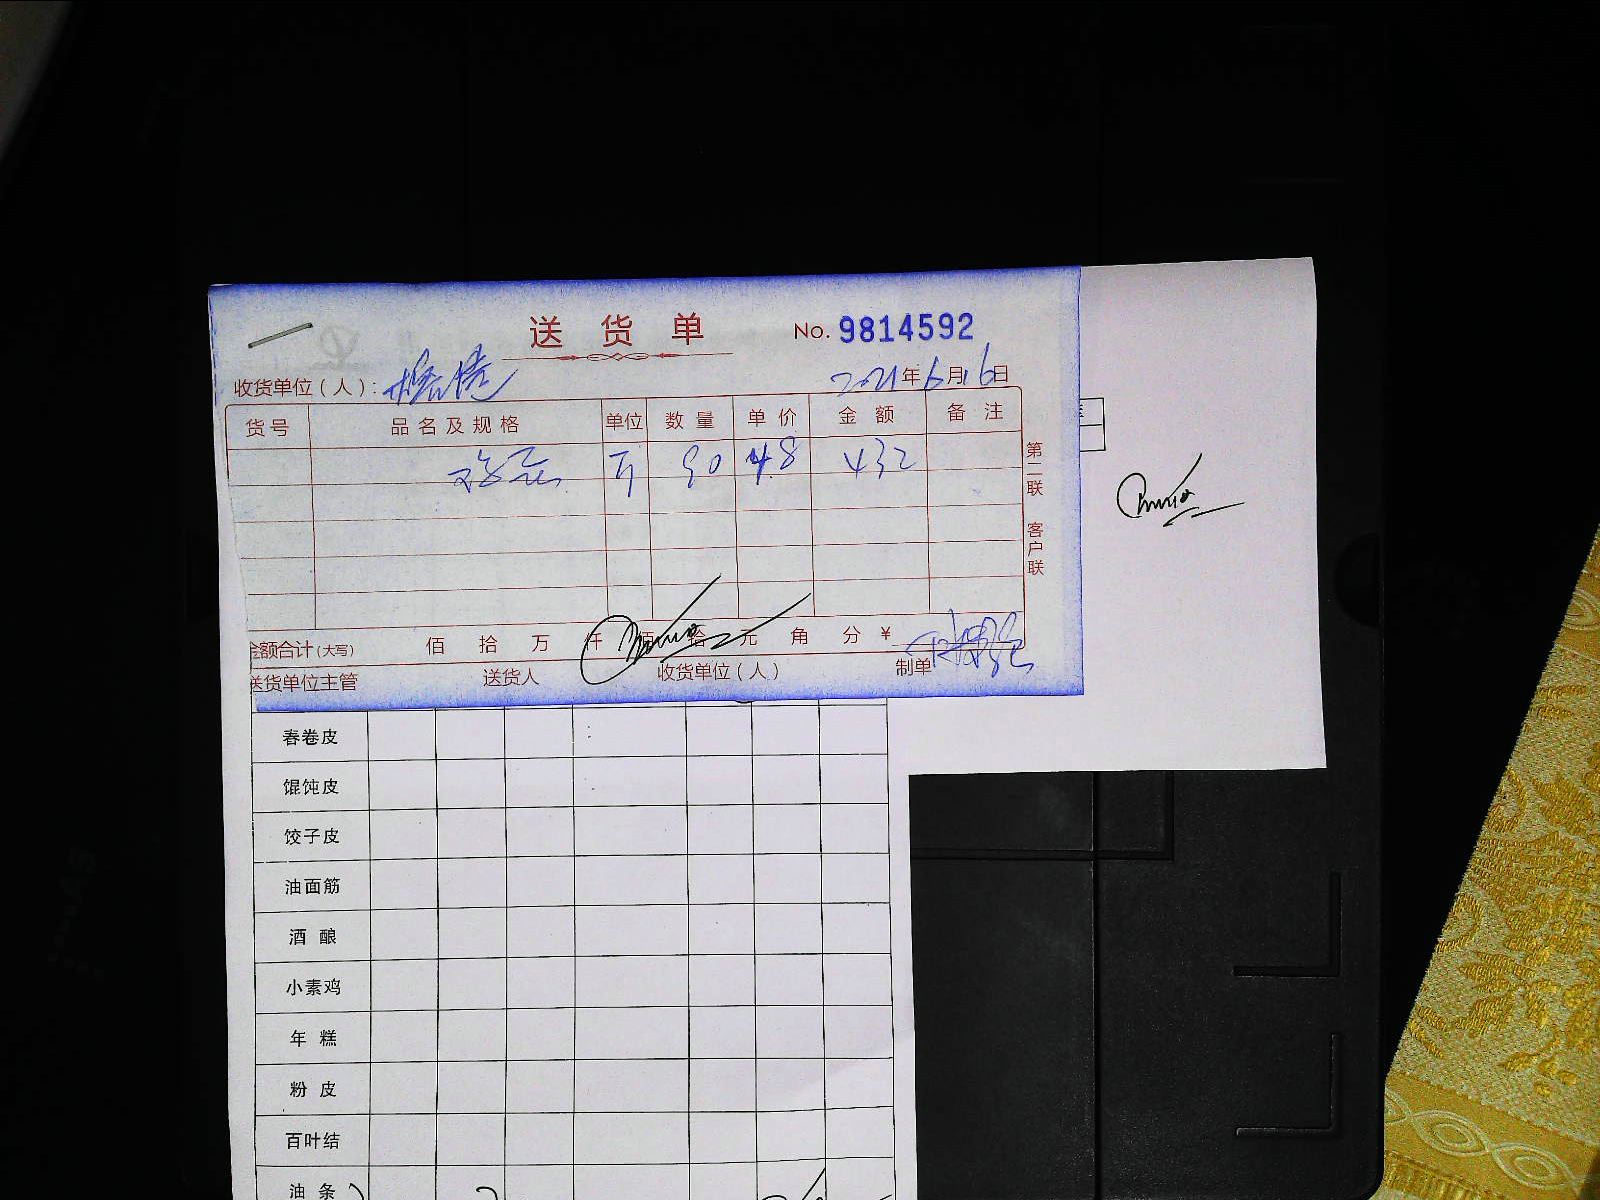 送货单 No. 9814592
收货单位(人):
2021年6月16日
货号 品名及规格 单位 数量 单价 金额 备注
斤 90 4.8 432
第二联 客户联
金额合计(大写) 佰 拾 万 仟 佰 拾 元 角 分 ¥
送货单位主管 送货人 收货单位(人) 制单
春卷皮
馄饨皮
饺子皮
油面筋
酒酿
小素鸡
年糕
粉皮
百叶结
油条